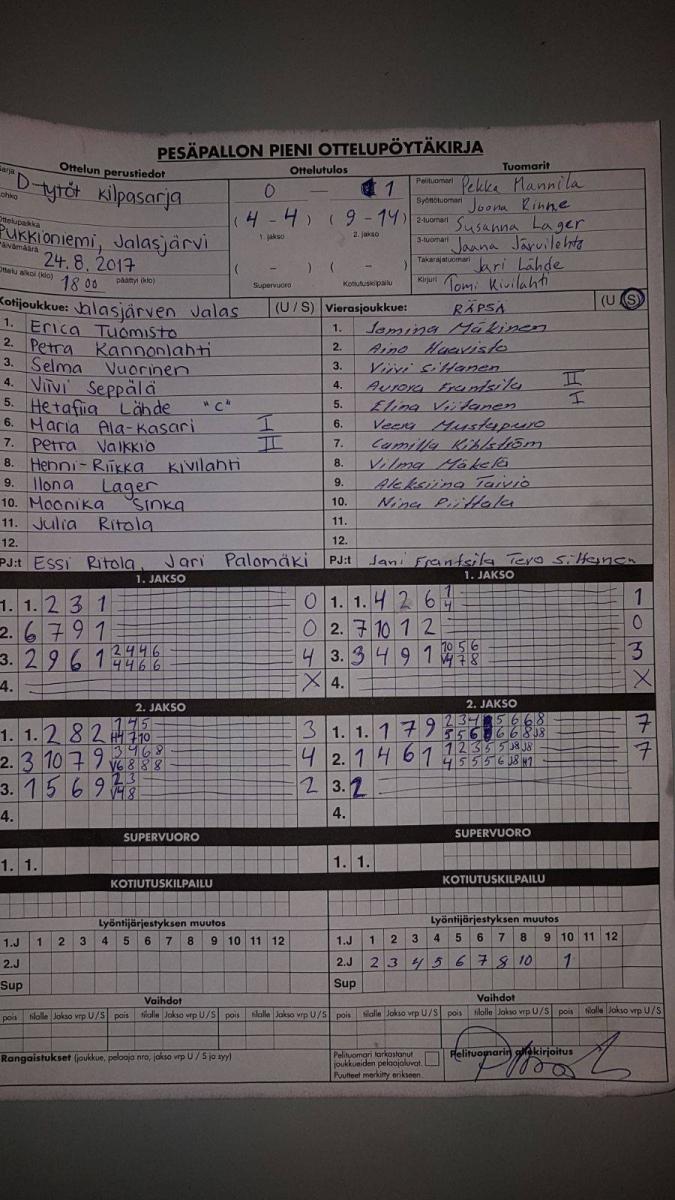 PESÄPALLON PIENI OTTELUPÖYTÄKIRJA
Ottelun perustiedot
Ottelutulos
Tuomarit
D-tytöt kilpasarja
0 — 1
Pelituomari Pekka Mannila
Lohko
Syöttötuomari Joona Rinne
Ottelupaikka
(4 - 4) (9 - 14)
2-tuomari Susanna Lager
Pukkioniemi, Jalasjärvi
1. jakso 2. jakso
3-tuomari Jaana Järvilehto
Päivämäärä
24.8.2017
( - ) ( - )
Takarajatuomari Jari Lähde
Ottelu alkoi (klo) 18 00 päättyi (klo)
Supervuoro Kotiutuskilpailu
Kirjuri Tomi Kivilahti
Kotijoukkue: Jalasjärven Jalas (U / S)
Vierasjoukkue: RÄPSÄ (U / S)
1. Erica Tuomisto
1. Jemina Mäkinen
2. Petra Kannonlahti
2. Aino Haavisto
3. Selma Vuorinen
3. Viivi Siltanen
4. Viivi Seppälä
4. Aurora Frantsila II
5. Hetafiia Lähde "C"
5. Elina Viitanen I
6. Maria Ala-Kasari I
6. Veera Mustapuro
7. Petra Valkkio II
7. Camilla Kihlström
8. Henni-Riikka Kivilahti
8. Vilma Mäkelä
9. Ilona Lager
9. Aleksiina Taivio
10. Moonika Sinka
10. Nina Piittala
11. Julia Ritola
11.
12.
12.
PJ:t Essi Ritola, Jari Palomäki
PJ:t Jani Frantsila Tero Siltanen
1. JAKSO
1. JAKSO
1. 1. 2 3 1 0
1. 1. 4 2 6 1 4 1
2. 6 7 9 1 0
2. 7 10 1 2 0
3. 2 9 6 1 2 4 4 6 4 4 6 6 4
3. 3 4 9 1 10 5 6 V4 7 8 3
4. X
4. X
2. JAKSO
2. JAKSO
1. 1. 2 8 2 1 4 5 H4 7 10 3
1. 1. 1 7 9 7
2. 3 10 7 9 3 4 6 8 V6 8 8 8 4
2. 1 4 6 1 1 2 3 5 5 J8 J8 4 5 5 5 6 J8 H1 7
3. 1 5 6 9 2 3 V4 8 2
3. 2
4.
4.
SUPERVUORO
SUPERVUORO
1. 1.
1. 1.
KOTIUTUSKILPAILU
KOTIUTUSKILPAILU
Lyöntijärjestyksen muutos
Lyöntijärjestyksen muutos
1.J 1 2 3 4 5 6 7 8 9 10 11 12
1.J 1 2 3 4 5 6 7 8 9 10 11 12
2.J
2.J 2 3 4 5 6 7 8 10 1
Sup
Sup
Vaihdot
Vaihdot
pois tilalle Jakso vrp U/S pois tilalle Jakso vrp U/S pois tilalle Jakso vrp U/S
pois tilalle Jakso vrp U/S pois tilalle Jakso vrp U/S pois tilalle Jakso vrp U/S
Rangaistukset (joukkue, pelaaja nro, jakso vrp U / S ja syy)
Pelituomari tarkastanut
joukkueiden pelaajaluvat.
Puutteet merkitty erikseen.
Pelituomarin allekirjoitus